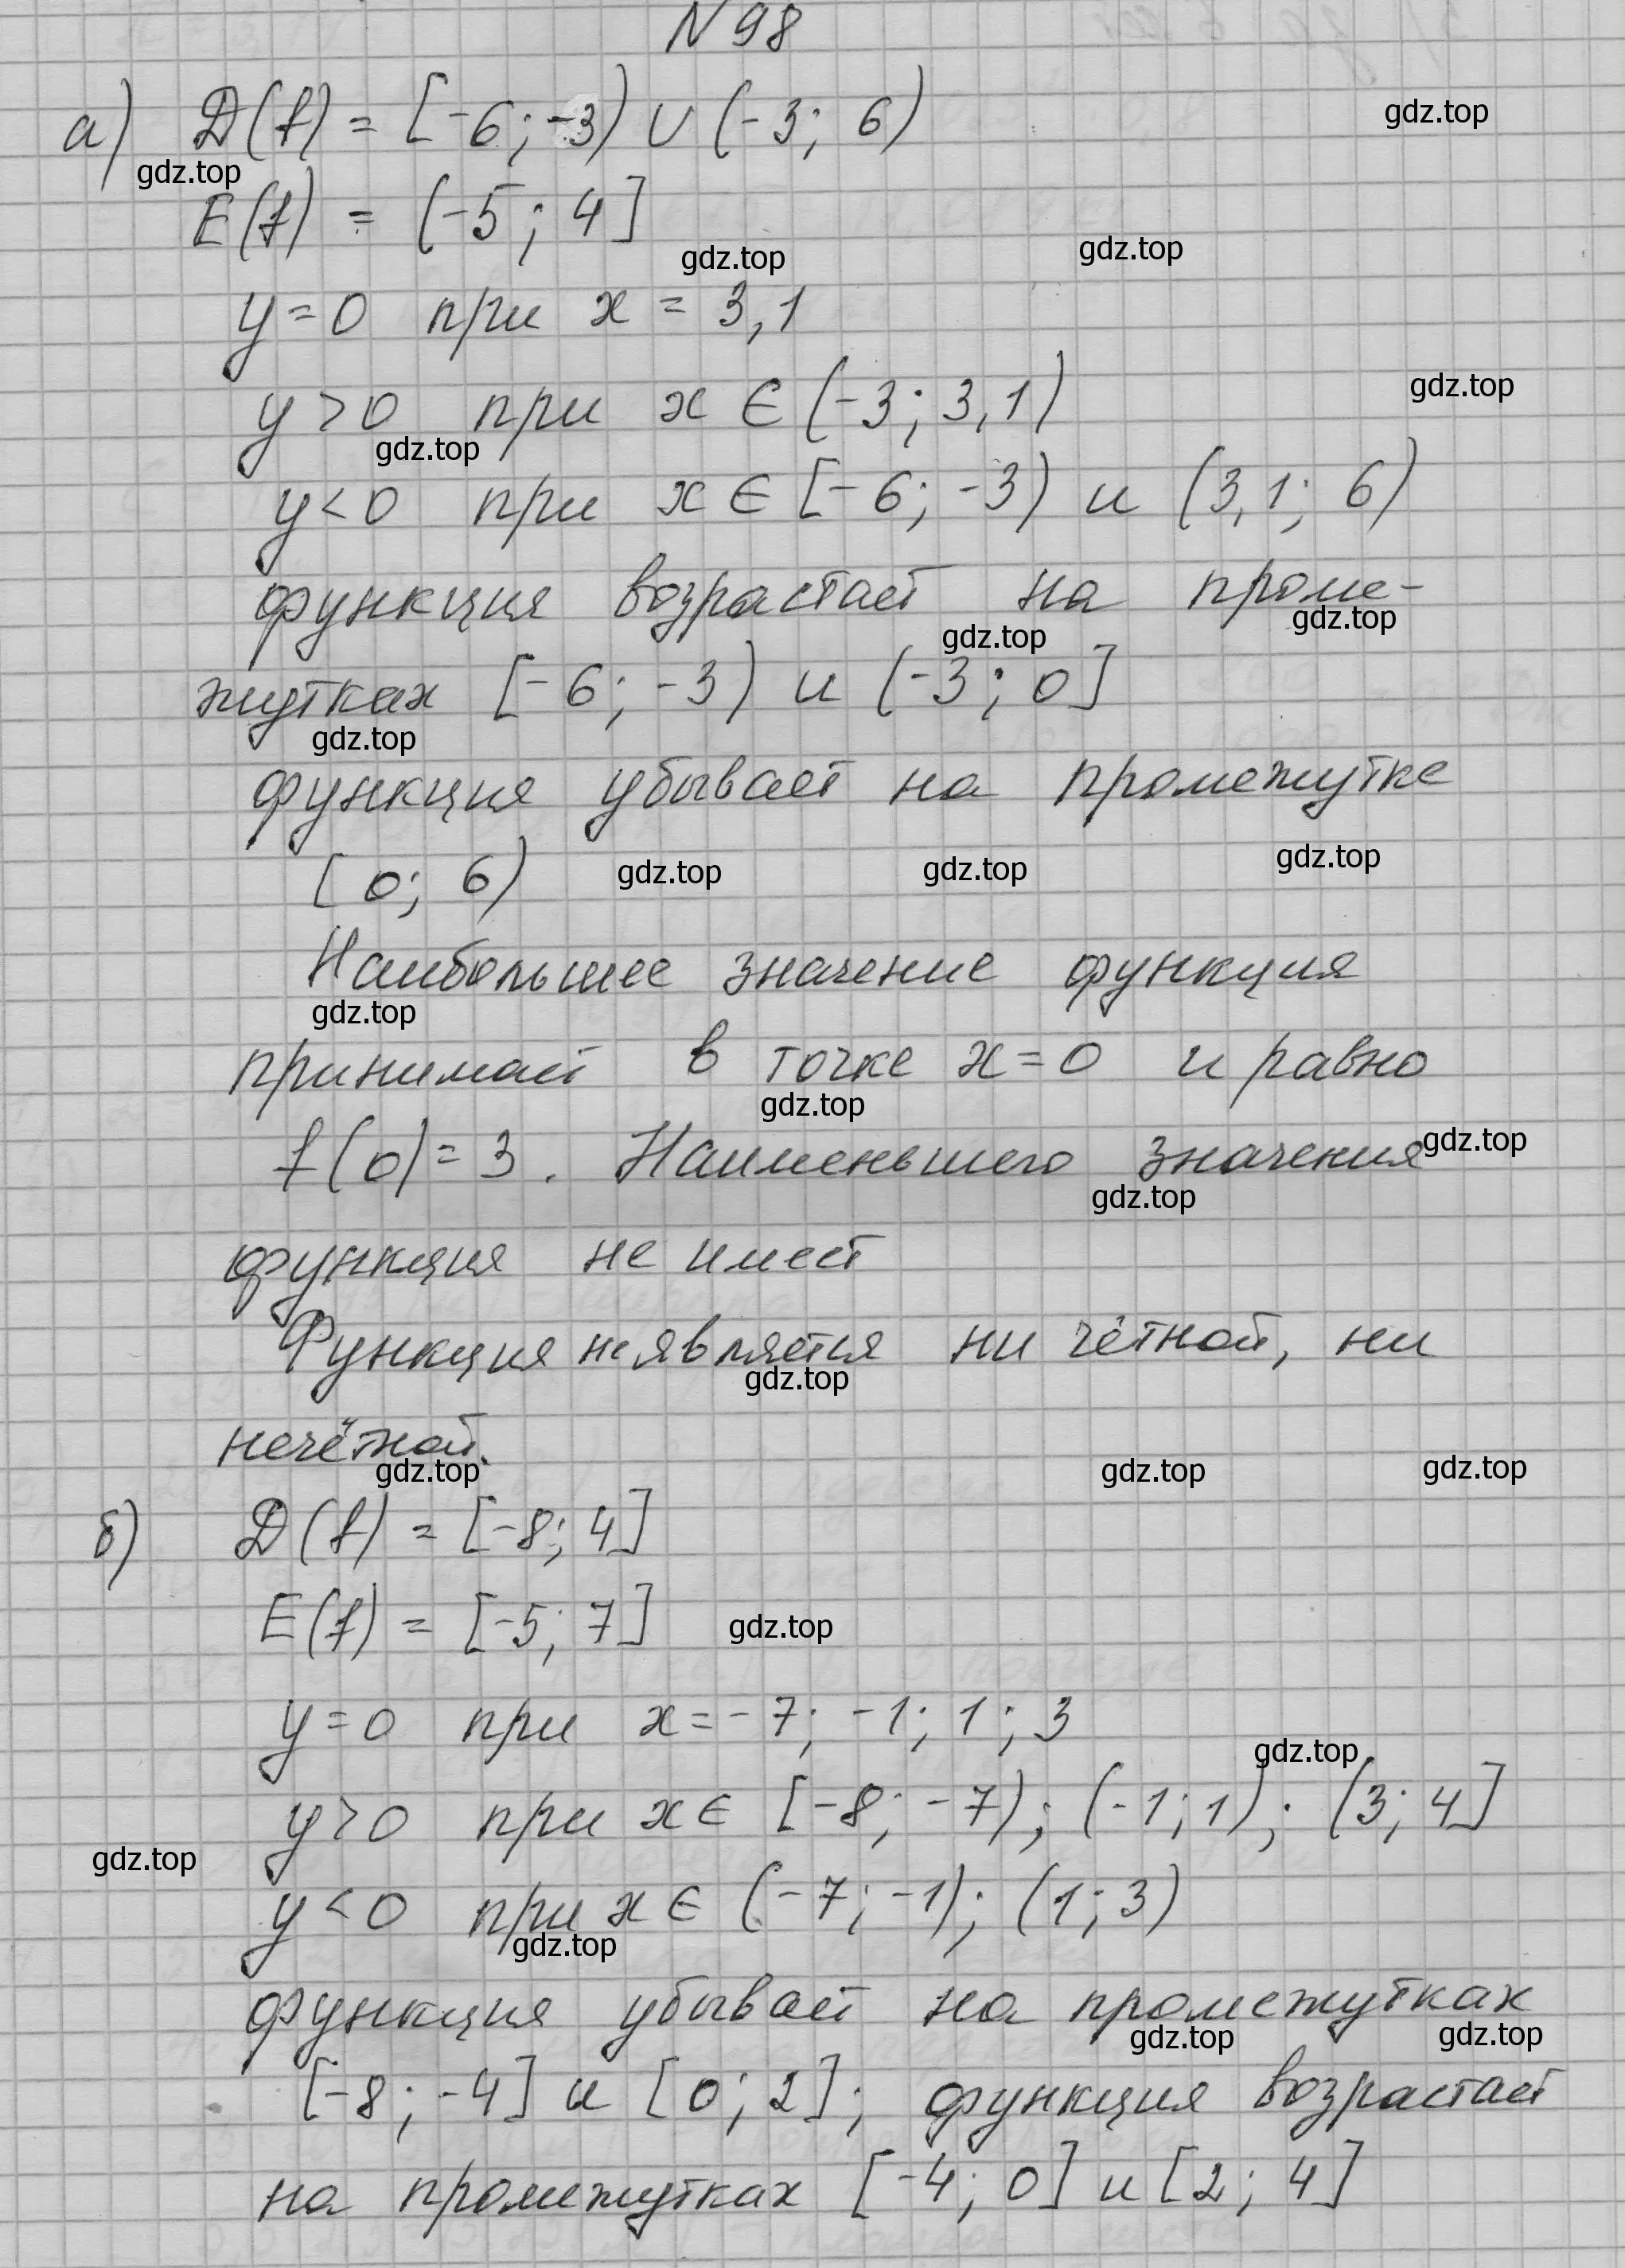 N 98
gdz.top
а) D(f) = [-6; -3) ∪ (-3; 6)
gdz.top
E(f) = (-5; 4]
gdz.top gdz.top
y=0 при x = 3,1
gdz.top
y>0 при x ∈ (-3; 3,1)
gdz.top
y<0 при x ∈ [-6; -3) и (3,1; 6)
функция возрастает на проме-
gdz.top gdz.top
жутках [-6; -3) и (-3; 0]
gdz.top
функция убывает на промежутке
[0; 6) gdz.top gdz.top gdz.top
Наибольшее значение функция
gdz.top
принимает в точке x=0 и равно
gdz.top
f(0)=3. Наименьшего значения
gdz.top
gdz.top
функция не имеет
Функция не является ни чётной, ни
gdz.top
нечётной.
gdz.top gdz.top gdz.top
б) D(f) = [-8; 4]
E(f) = [-5; 7] gdz.top
y=0 при x=-7; -1; 1; 3
gdz.top
y>0 при x∈ [-8; -7); (-1; 1); (3; 4]
gdz.top
y<0 при x∈ (-7; -1); (1; 3)
gdz.top
функция убывает на промежутках
gdz.top gdz.top
[-8; -4] и [0; 2]; функция возрастает
на промежутках [-4; 0] и [2; 4]